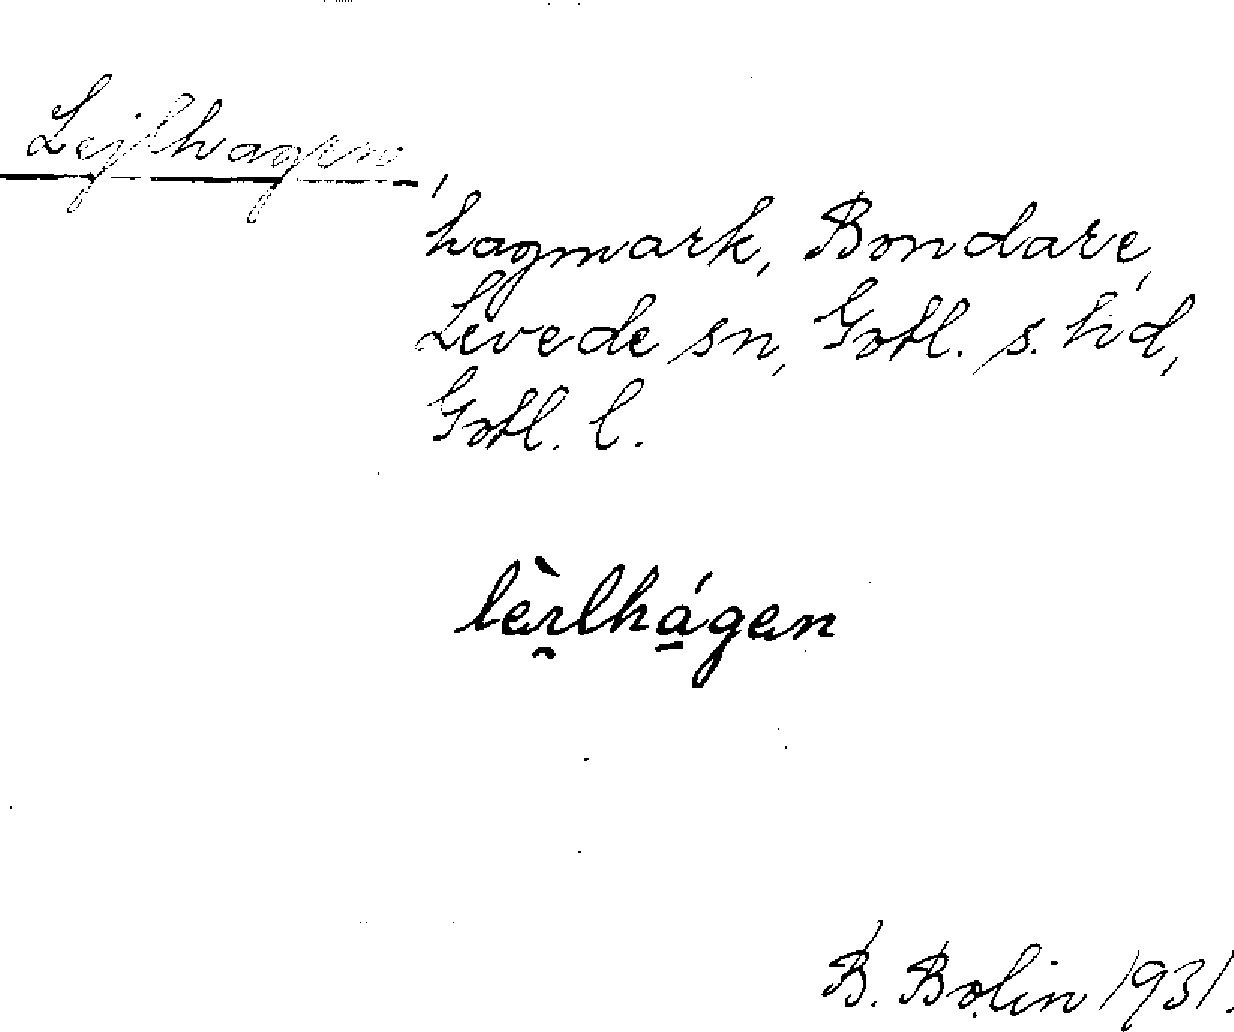 Lejlhagen,
hagmark, Bondarve,
Levede sn, Gotl. s. hd,
Gotl. l.
lèɪ̯lhá̱gən
B. Bolin 1931.